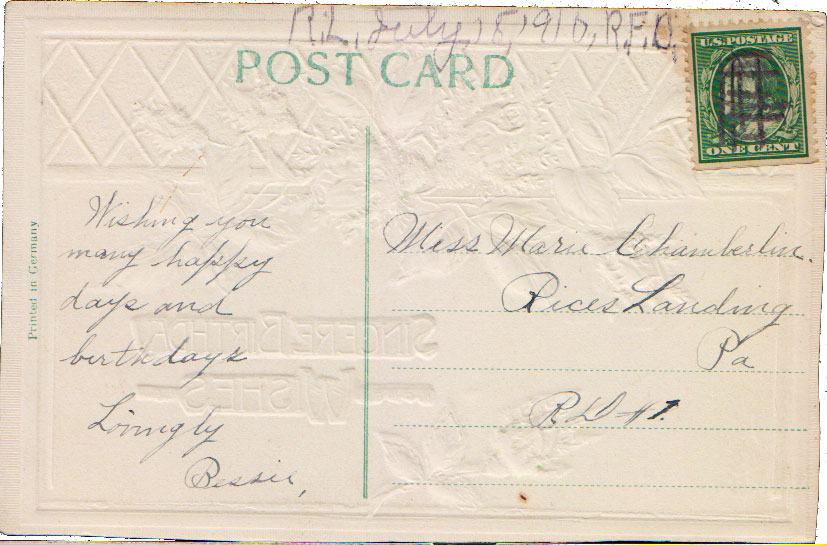 R.L. July 18, 1910, R.F.D.
POST CARD
U.S. POSTAGE
ONE CENT
Printed in Germany
Wishing you
many happy
days and
birthdays
Lovingly
Bessie,
Miss Marie Chamberlin.
Rices Landing
Pa
R D #1.
SINCERE BIRTHDAY
WISHES